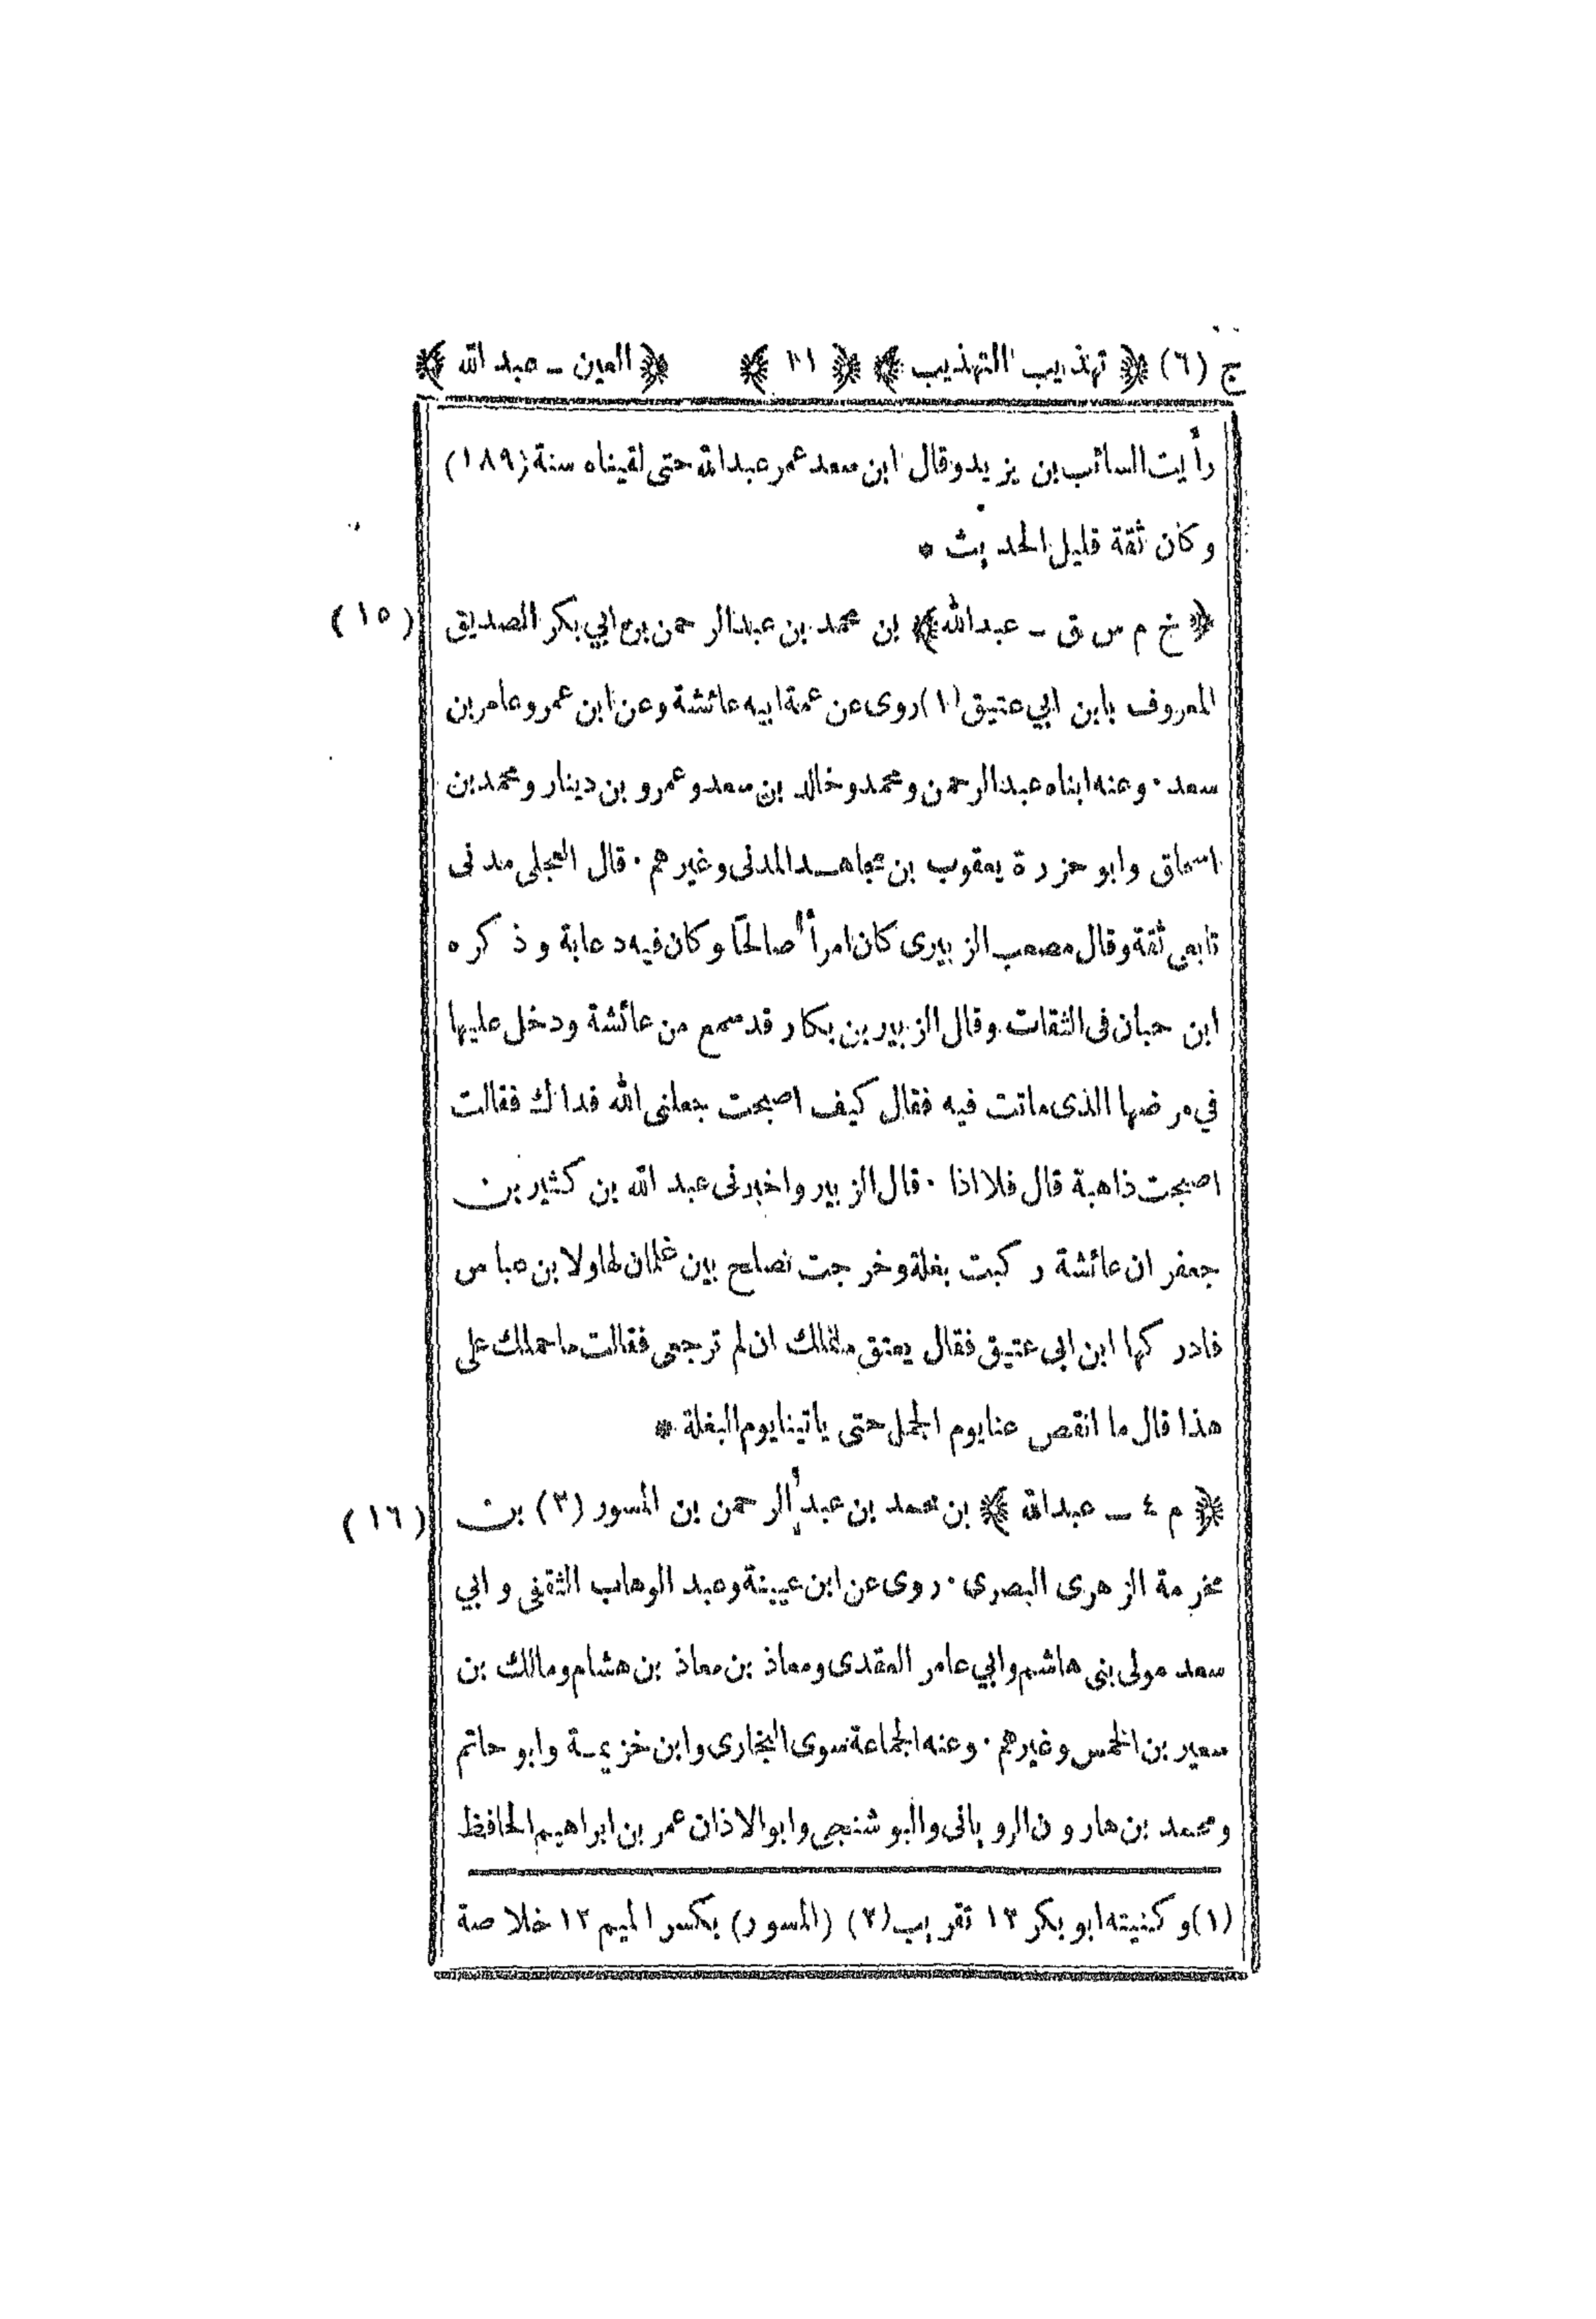 ج (٦) ﴿ تهذيب التهذيب ﴾ ﴿ ١١ ﴾ ﴿ العين ـ عبد الله ﴾
رأيت السائب بن يزيد وقال ابن سعد عمر عبد الله حتى لقيناه سنة (١٨٩)
وكان ثقة قليل الحديث *
﴿ خ م س ق ـ عبد الله ﴾ بن محمد بن عبد الرحمن بن ابي بكر الصديق (١٥)
المعروف بابن ابي عتيق (١) روى عن عمة ابيه عائشة وعن ابن عمر وعامر بن
سعد. وعنه ابناه عبد الرحمن ومحمد وخالد بن سعد وعمرو بن دينار ومحمد بن
اسحاق وابو حزرة يعقوب بن مجاهد المدنى وغيرهم. قال العجلى مدنى
تابعى ثقة وقال مصعب الزبيرى كان امرأ صالحًا وكان فيه دعابة وذكره
ابن حبان فى الثقات وقال الزبير بن بكار قد سمع من عائشة ودخل عليها
في مرضها الذى ماتت فيه فقال كيف اصبحت جعلنى الله فداك فقالت
اصبحت ذاهبة قال فلا اذا. قال الزبير واخبرنى عبد الله بن كثير بن
جعفر ان عائشة ركبت بغلة وخرجت تصلح بين غلمان لها ولابن عباس
فادركها ابن ابى عتيق فقال يعتق ماتملك ان لم ترجعى فقالت ما حملك على
هذا قال ما انقص عنا يوم الجمل حتى ياتينا يوم البغلة *
﴿ م ٤ ـ عبد الله ﴾ بن محمد بن عبد الرحمن بن المسور (٢) بن (١٦)
مخرمة الزهرى البصرى. روى عن ابن عيينة وعبد الوهاب الثقفى وابي
سعد مولى بنى هاشم وابي عامر العقدى ومعاذ بن معاذ بن هشام ومالك بن
سعير بن الخمس وغيرهم. وعنه الجماعة سوى البخارى وابن خزيمة وابو حاتم
ومحمد بن هارون الرويانى والبوشنجى وابو الاذان عمر بن ابراهيم الحافظ
(١) وكنيته ابو بكر ١٢ تقريب (٢) (المسور) بكسر الميم ١٢ خلاصة